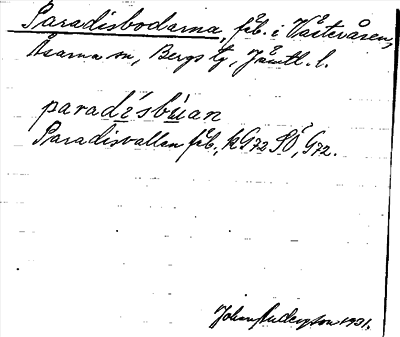 Paradisbodarna, fäb. i Västeråsen,
Åsarna sn, Bergs tg, Jämtl. l.
paradisbúan
Paradisvallen fäb., kG72 SO, G72.
Johan Anderson 1931.